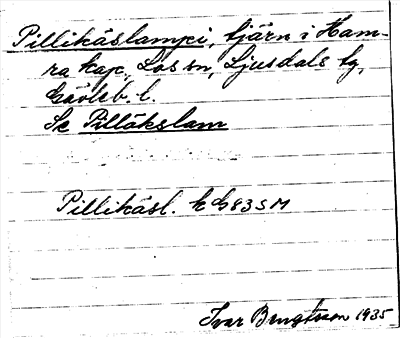 Pillikäslampi, tjärn i Ham-
ra kap., Los sn, Ljusdals tg,
Gävleb. l.
Se Pilläkslam
Pillikäsl. k G83SM
Ivar Bengtsson 1935